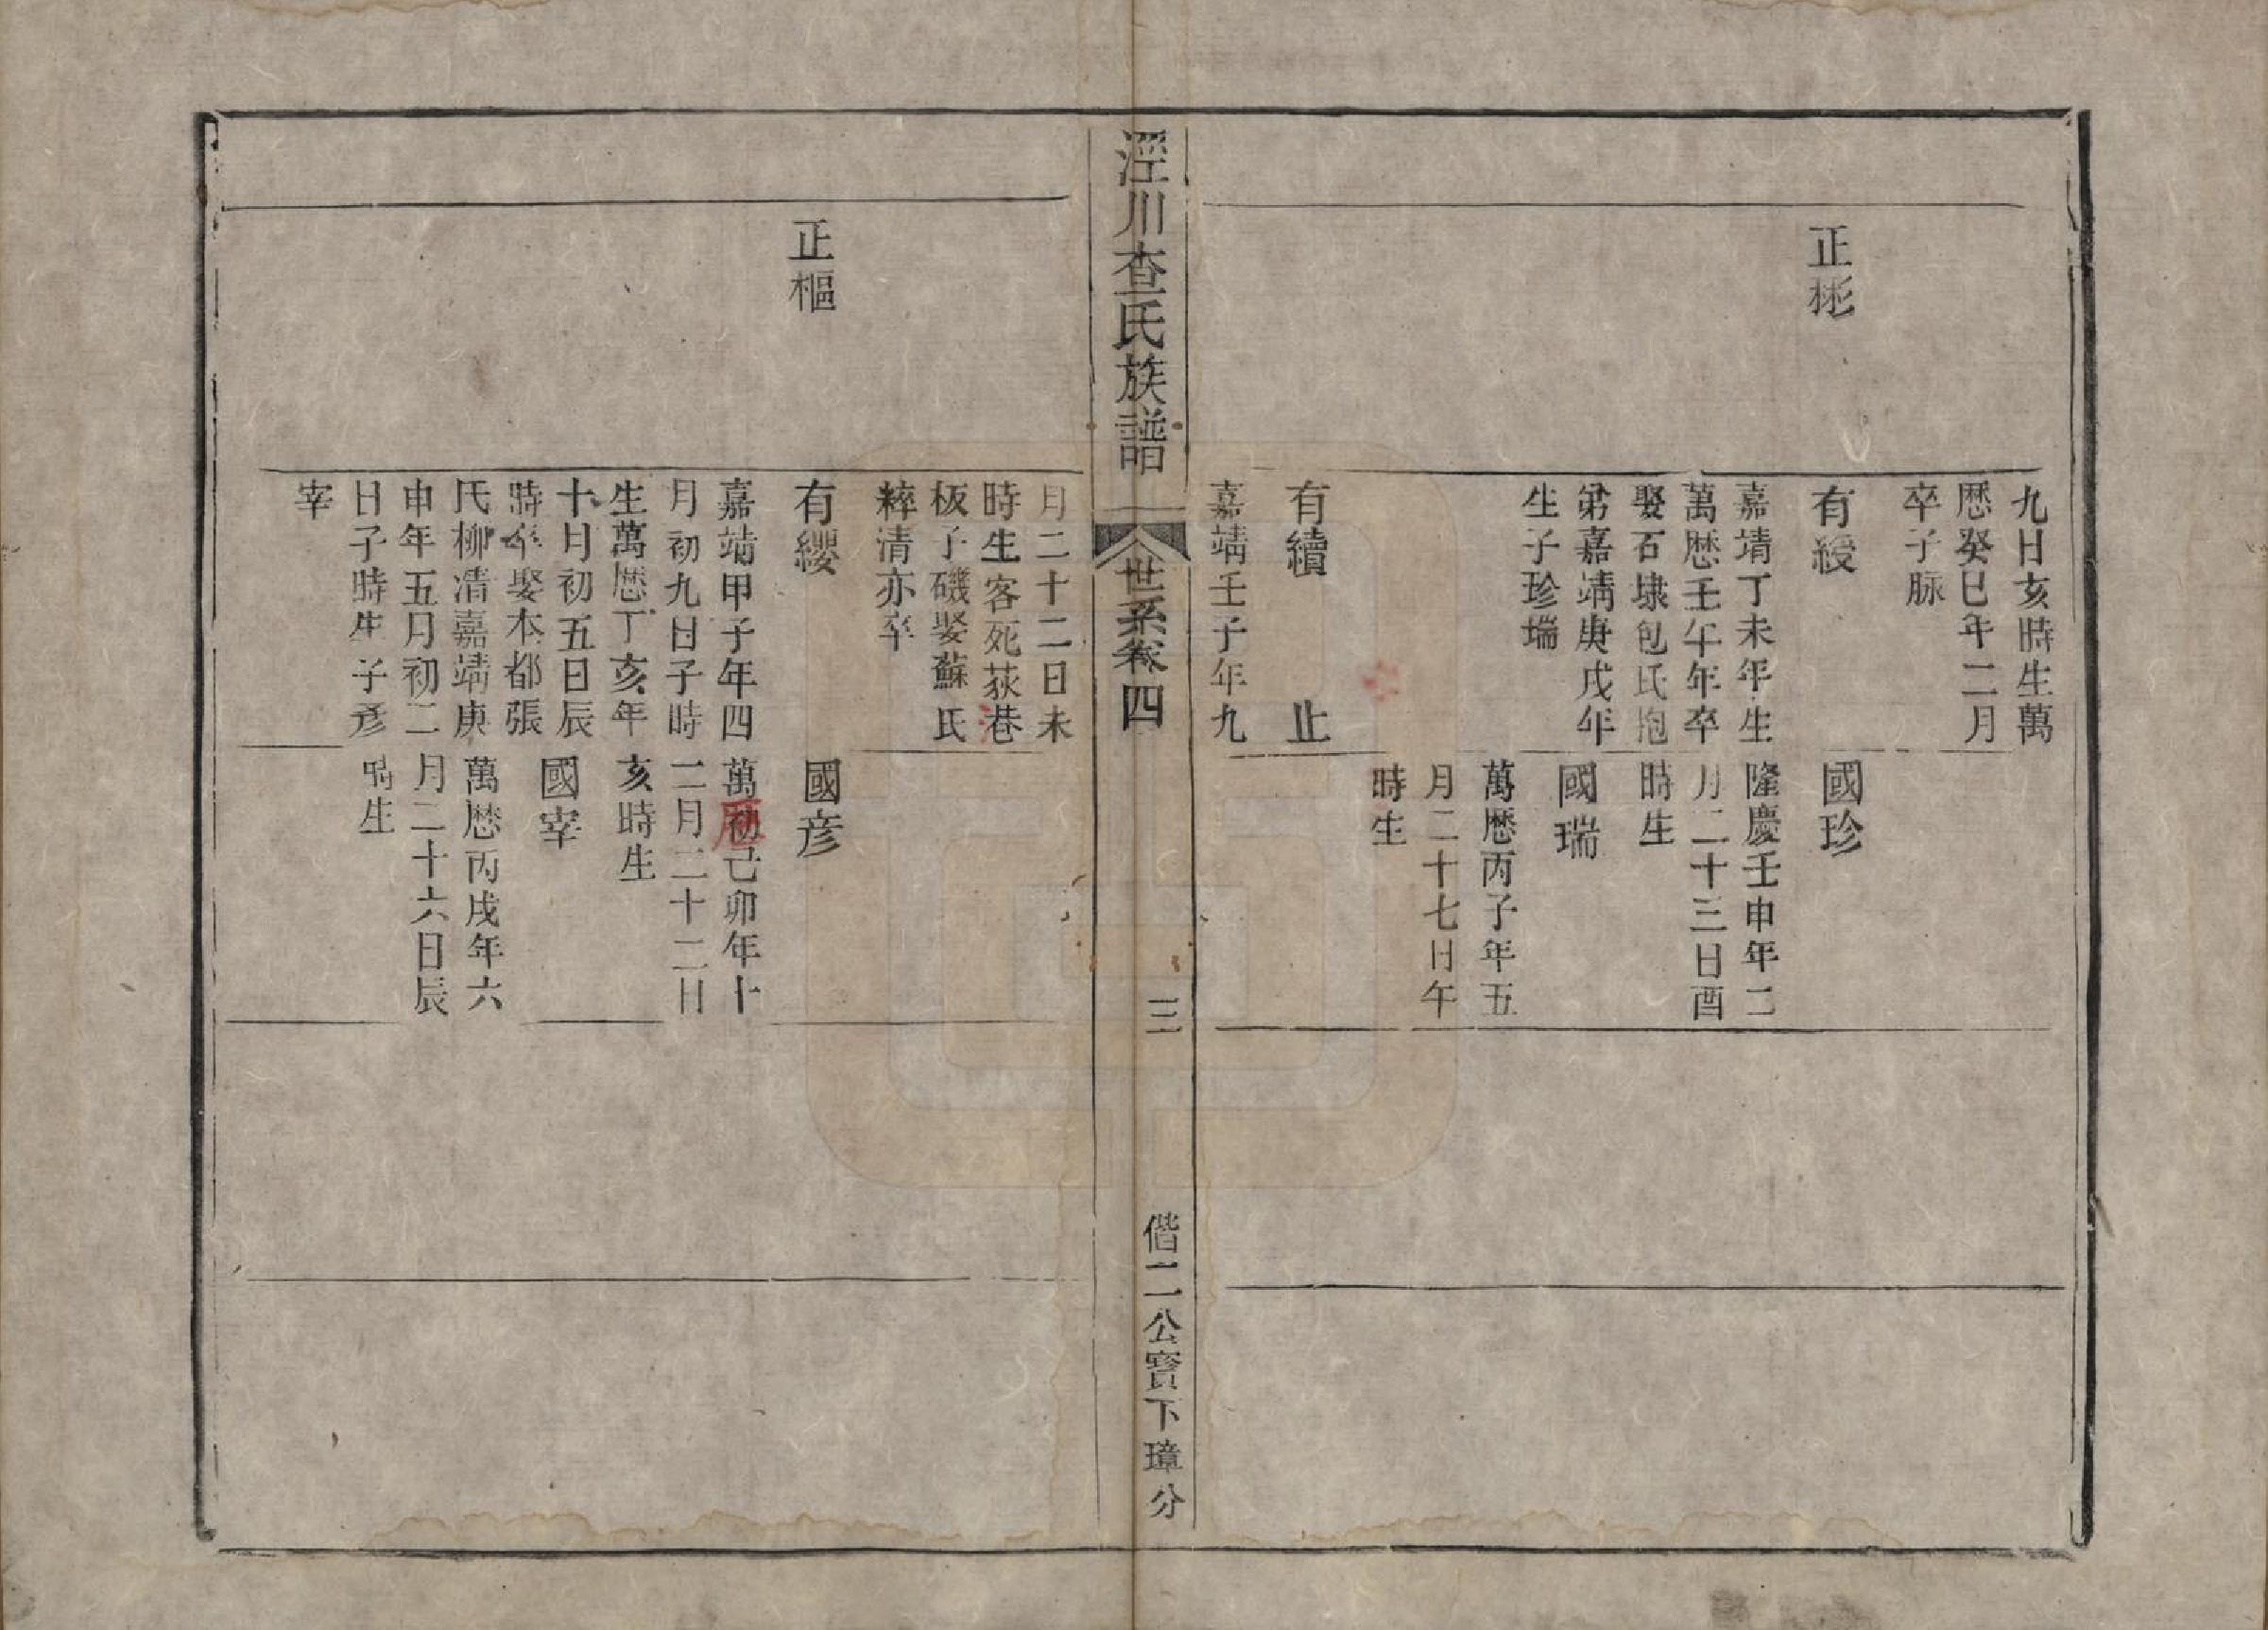 正彬
九日亥時生萬
歷癸巳年二月
卒子脉
有綬
嘉靖丁未年生
萬歷壬午年卒
娶石埭包氏抱
弟嘉靖庚戌年
生子珍瑞
國珍
隆慶壬申年二
月二十三日酉
時生
國瑞
萬歷丙子年五
月二十七日午
時生
有續 止
嘉靖壬子年九
涇川查氏族譜
世系卷四
三
偕二公寶下璋分
月二十二日未
時生客死荻巷
板子磯娶蘇氏
粹清亦卒
正樞
有纓
嘉靖甲子年四
月初九日子時
生萬歷丁亥年
十月初五日辰
時卒娶本都張
氏柳清嘉靖庚
申年五月初二
日子時生子彥
宰
國彥
萬歷己卯年十
二月二十二日
亥時生
國宰
萬歷丙戌年六
月二十六日辰
時生